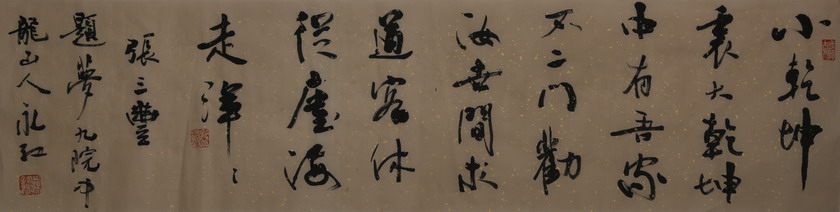 小乾坤
裏大乾坤
中有吾家
不二門勸
汝世間求
道客休
從塵海
走渾〻
張三豐
題夢九院中
龍山人永紅